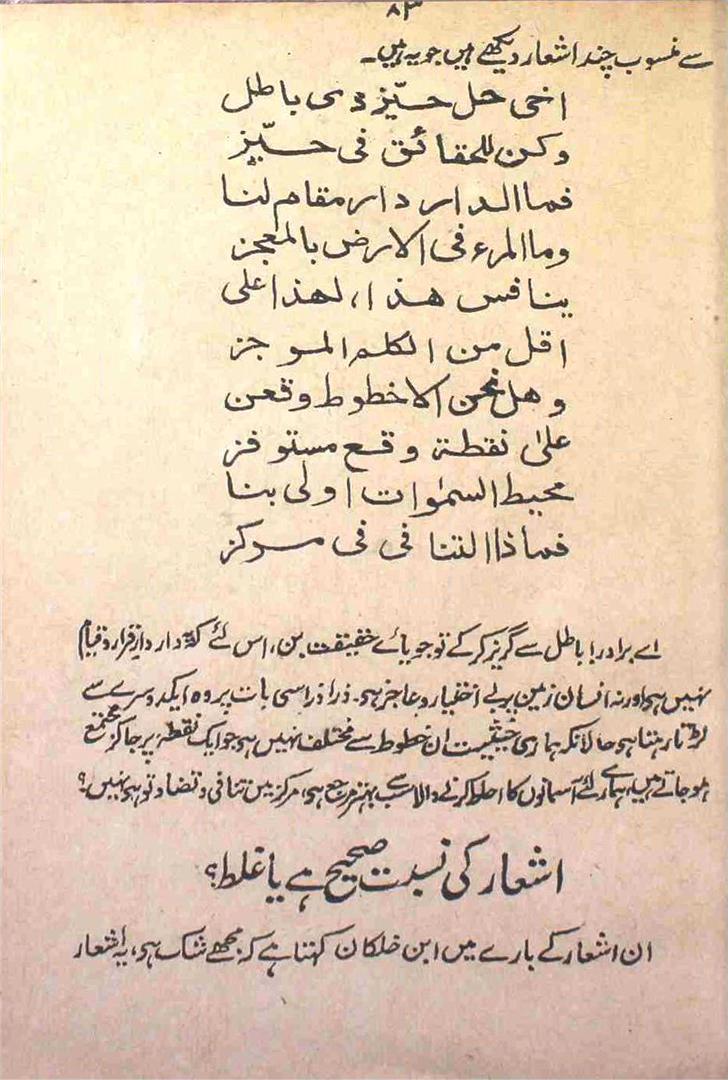 ۸۳
سے منسوب چند اشعار دیکھے ہیں جو یہ ہیں۔
اخی خل حیّز ذی باطل
وکن للحقائق فی حیّز
فما الدار دار مقام لنا
وما المرء فی الارض بالمعجز
ینافس ھذا، لھذا علی
اقل من الکلم الموجز
وھل نحن الا خطوط وقعن
علیٰ نقطۃ وقع مستوفز
محیط السمٰوات اولی بنا
فماذا التنا فی فی مرکز
اے برادر! باطل سے گریز کر کے تو جویائے حقیقت بن، اس لئے کہ دار دار قرار و قیام
نہیں ہی اور نہ انسان زمین پر بے اختیار و عاجز ہی۔ ذرا ذرا سی بات پر وہ ایک دوسرے سے
لڑتا رہتا ہی حالانکہ ہماری حیثیت ان خطوط سے مختلف نہیں ہی جو ایک نقطہ پر جا کر مجتمع
ہو جاتے ہیں، ہمارے لئے آسمانوں کا احاطہ کرنے والا سب سے بہتر مرجع ہی، مرکز میں تنافی و تضاد تو ہی نہیں؟
اشعار کی نسبت صحیح ہے یا غلط؟
ان اشعار کے بارے میں ابن خلکان کہتا ہے کہ مجھے شک ہی، یہ اشعار